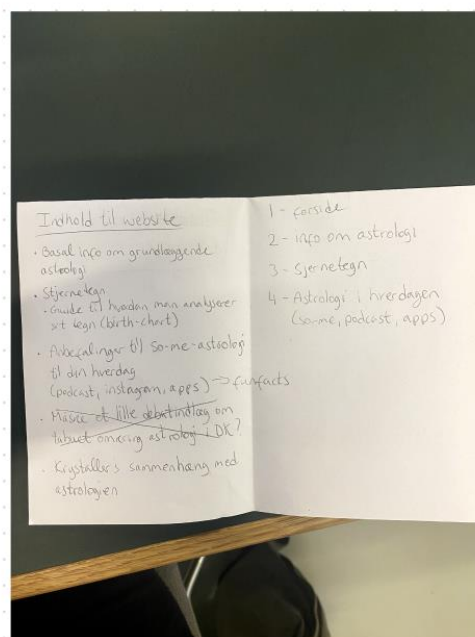 Indhold til website
· Basal info om grundlæggende
astrologi
· Stjernetegn
- Guide til hvordan man analyserer
sit tegn (birth-chart)
· Anbefalinger til so-me-astrologi
til din hverdag
(podcast, instagram, apps) -> funfacts
· Måske et lille debatindlæg om
tabuet omkring astrologi i DK?
· Krystallers sammenhæng med
astrologien
1 - forside
2 - info om astrologi
3 - Sjernetegn
4 - Astrologi i hverdagen
(so-me, podcast, apps)